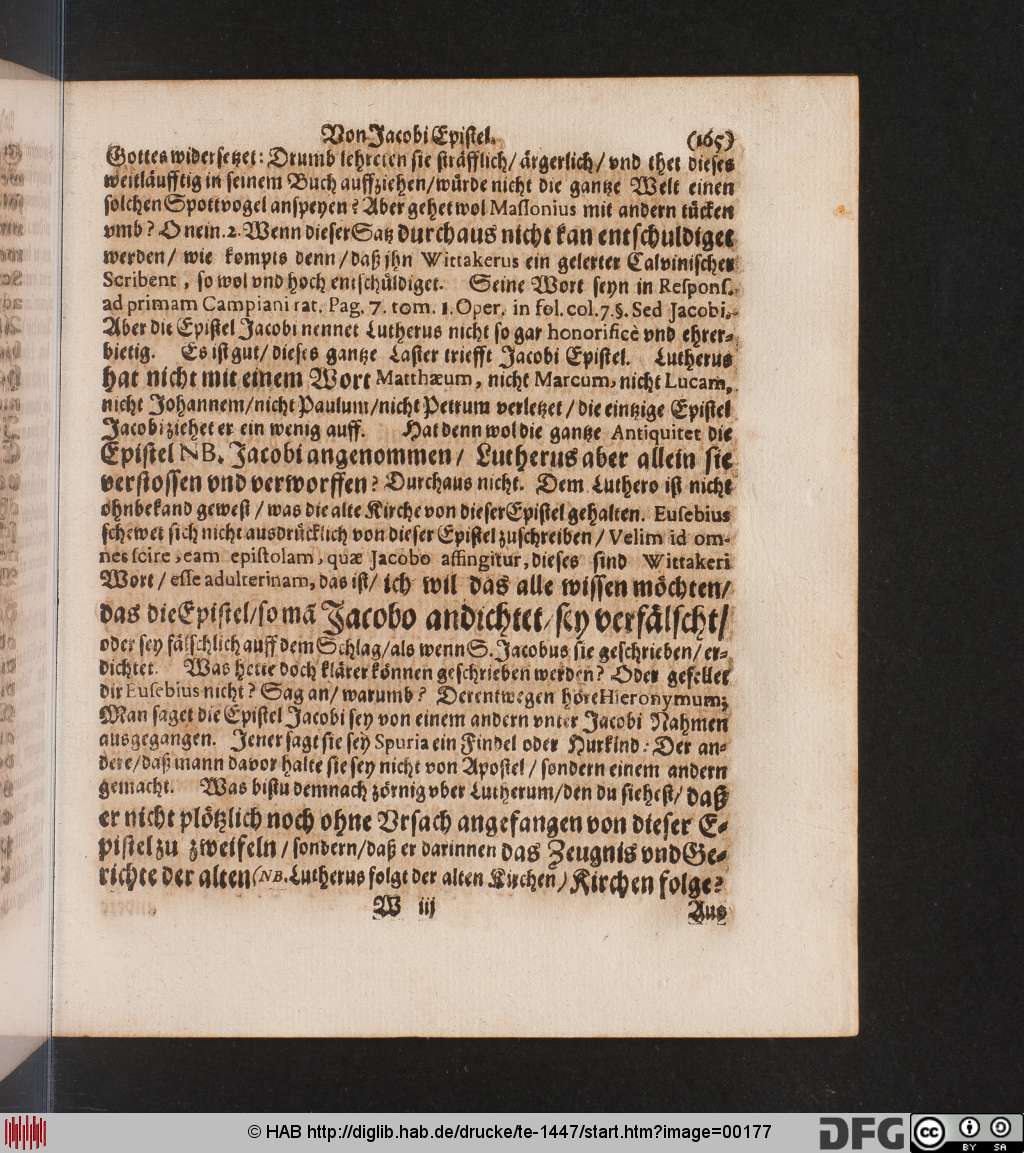 Von Jacobi Epiſtel. (165)
Gottes widerſetzet: Drumb lehreten ſie ſträfflich/ ärgerlich/ vnd thet dieſes
weitläufftig in ſeinem Buch auffziehen/ würde nicht die gantze Welt einen
ſolchen Spottvogel anſpeyen? Aber gehet wol Maſſonius mit andern tücken
vmb? O nein. 2. Wenn dieſer Satz durchaus nicht kan entſchuldiget
werden/ wie kompts denn/ daß jhn Wittakerus ein gelerter Calviniſcher
Scribent, ſo wol vnd hoch entſchüldiget. Seine Wort ſeyn in Reſponſ.
ad primam Campiani rat. Pag. 7. tom. 1. Oper. in fol. col. 7. §. Sed Jacobi.
Aber die Epiſtel Jacobi nennet Lutherus nicht ſo gar honorificè vnd ehrer-
bietig. Es iſt gut/ dieſes gantze Laſter triefft Jacobi Epiſtel. Lutherus
hat nicht mit einem Wort Matthæum, nicht Marcum, nicht Lucam,
nicht Johannem/ nicht Paulum/ nicht Petrum verletzet/ die eintzige Epiſtel
Jacobi ziehet er ein wenig auff. Hat denn wol die gantze Antiquitet die
Epiſtel NB. Jacobi angenommen/ Lutherus aber allein ſie
verſtoſſen vnd verworffen? Durchaus nicht. Dem Luthero iſt nicht
ohnbekand geweſt/ was die alte Kirche von dieſer Epiſtel gehalten. Euſebius
ſchewet ſich nicht ausdrücklich von dieſer Epiſtel zuſchreiben/ Velim id om-
nes ſcire, eam epiſtolam, quæ Jacobo affingitur, dieſes ſind Wittakeri
Wort/ eſſe adulterinam, das iſt/ ich wil das alle wiſſen möchten/
das die Epiſtel/ ſo mã Jacobo andichtet/ ſey verfälſcht/
oder ſey fälſchlich auff dem Schlag/ als wenn S. Jacobus ſie geſchrieben/ er-
dichtet. Was hette doch klärer können geſchrieben werden? Oder gefellet
dir Euſebius nicht? Sag an/ warumb? Derentwegen höre Hieronymum;
Man ſaget die Epiſtel Jacobi ſey von einem andern vnter Jacobi Nahmen
ausgegangen. Jener ſagt ſie ſey Spuria ein Findel oder Hurkind: Der an-
dere/ daß mann davor halte ſie ſey nicht von Apoſtel/ ſondern einem andern
gemacht. Was biſtu demnach zörnig vber Lutherum/ den du ſieheſt/ daß
er nicht plötzlich noch ohne Vrſach angefangen von dieſer E-
piſtel zu zweifeln/ ſondern/ daß er darinnen das Zeugnis vnd Ge-
richte der alten (NB. Lutherus folgt der alten Kirchen) Kirchen folge?
W iij Aus
© HAB http://diglib.hab.de/drucke/te-1447/start.htm?image=00177
DFG cc BY SA